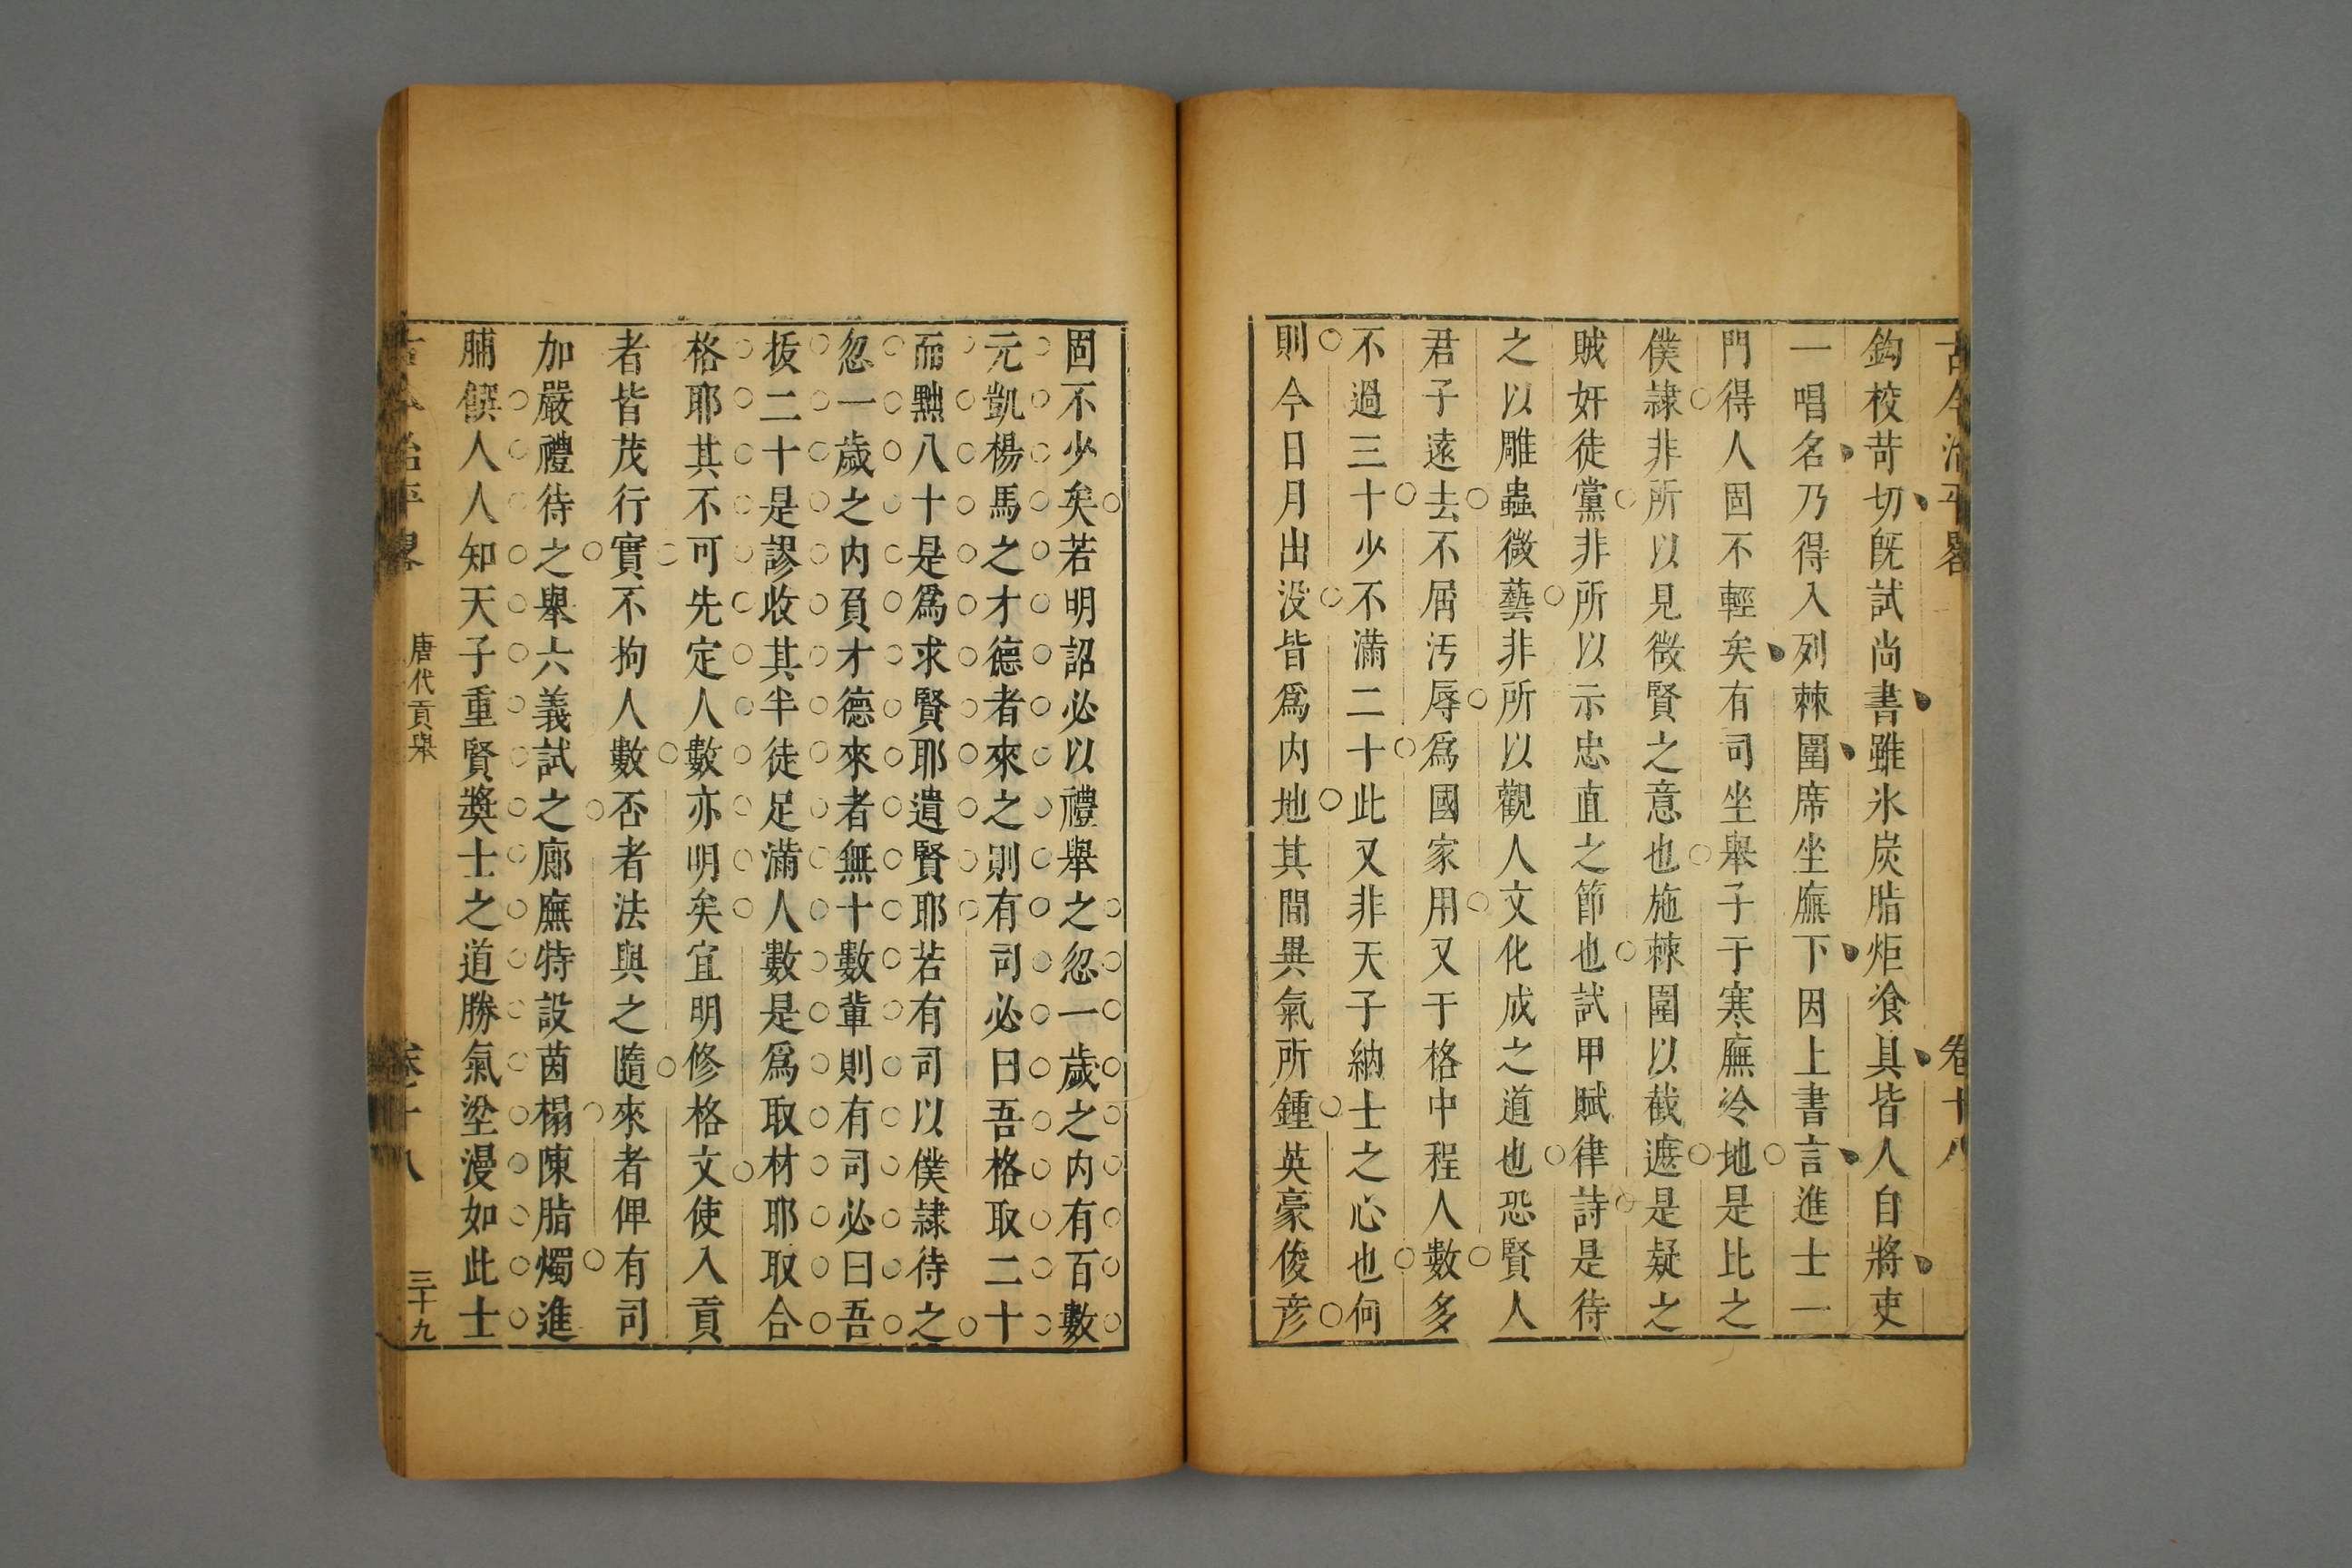 古今治平畧 卷十八
鈎校苛切既試尚書雖氷炭脂炬飡具皆人自將吏
一唱名乃得入列棘圍席坐廡下因上書言進士一
門得人固不輕矣有司坐舉子于寒廡冷地是比之
僕隷非所以見徴賢之意也施棘圍以截遮是疑之
賊奸徒黨非所以示忠直之節也試甲賦律詩是待
之以雕蟲微藝非所以觀人文化成之道也恐賢人
君子遠去不屑汚辱爲國家用又于格中程人數多
不過三十少不滿二十此又非天子納士之心也何
則今日月出没皆爲内地其間異氣所鍾英豪俊彦
固不少矣若明詔必以禮舉之忽一歲之内有百數
元凱楊馬之才德者來之則有司必曰吾格取二十
而黜八十是爲求賢耶遺賢耶若有司以僕隷待之
忽一歲之内負才德來者無十數輩則有司必曰吾
拔二十是謬收其半徒足滿人數是爲取材耶取合
格耶其不可先定人數亦明矣宜明修格文使入貢
者皆茂行實不拘人數否者法與之隨來者俾有司
加嚴禮待之舉六義試之廊廡特設茵榻陳脂燭進
脯饌人人知天子重賢奬士之道勝氣坌漫如此士
古今治平畧 唐代貢舉 卷十八 三十九